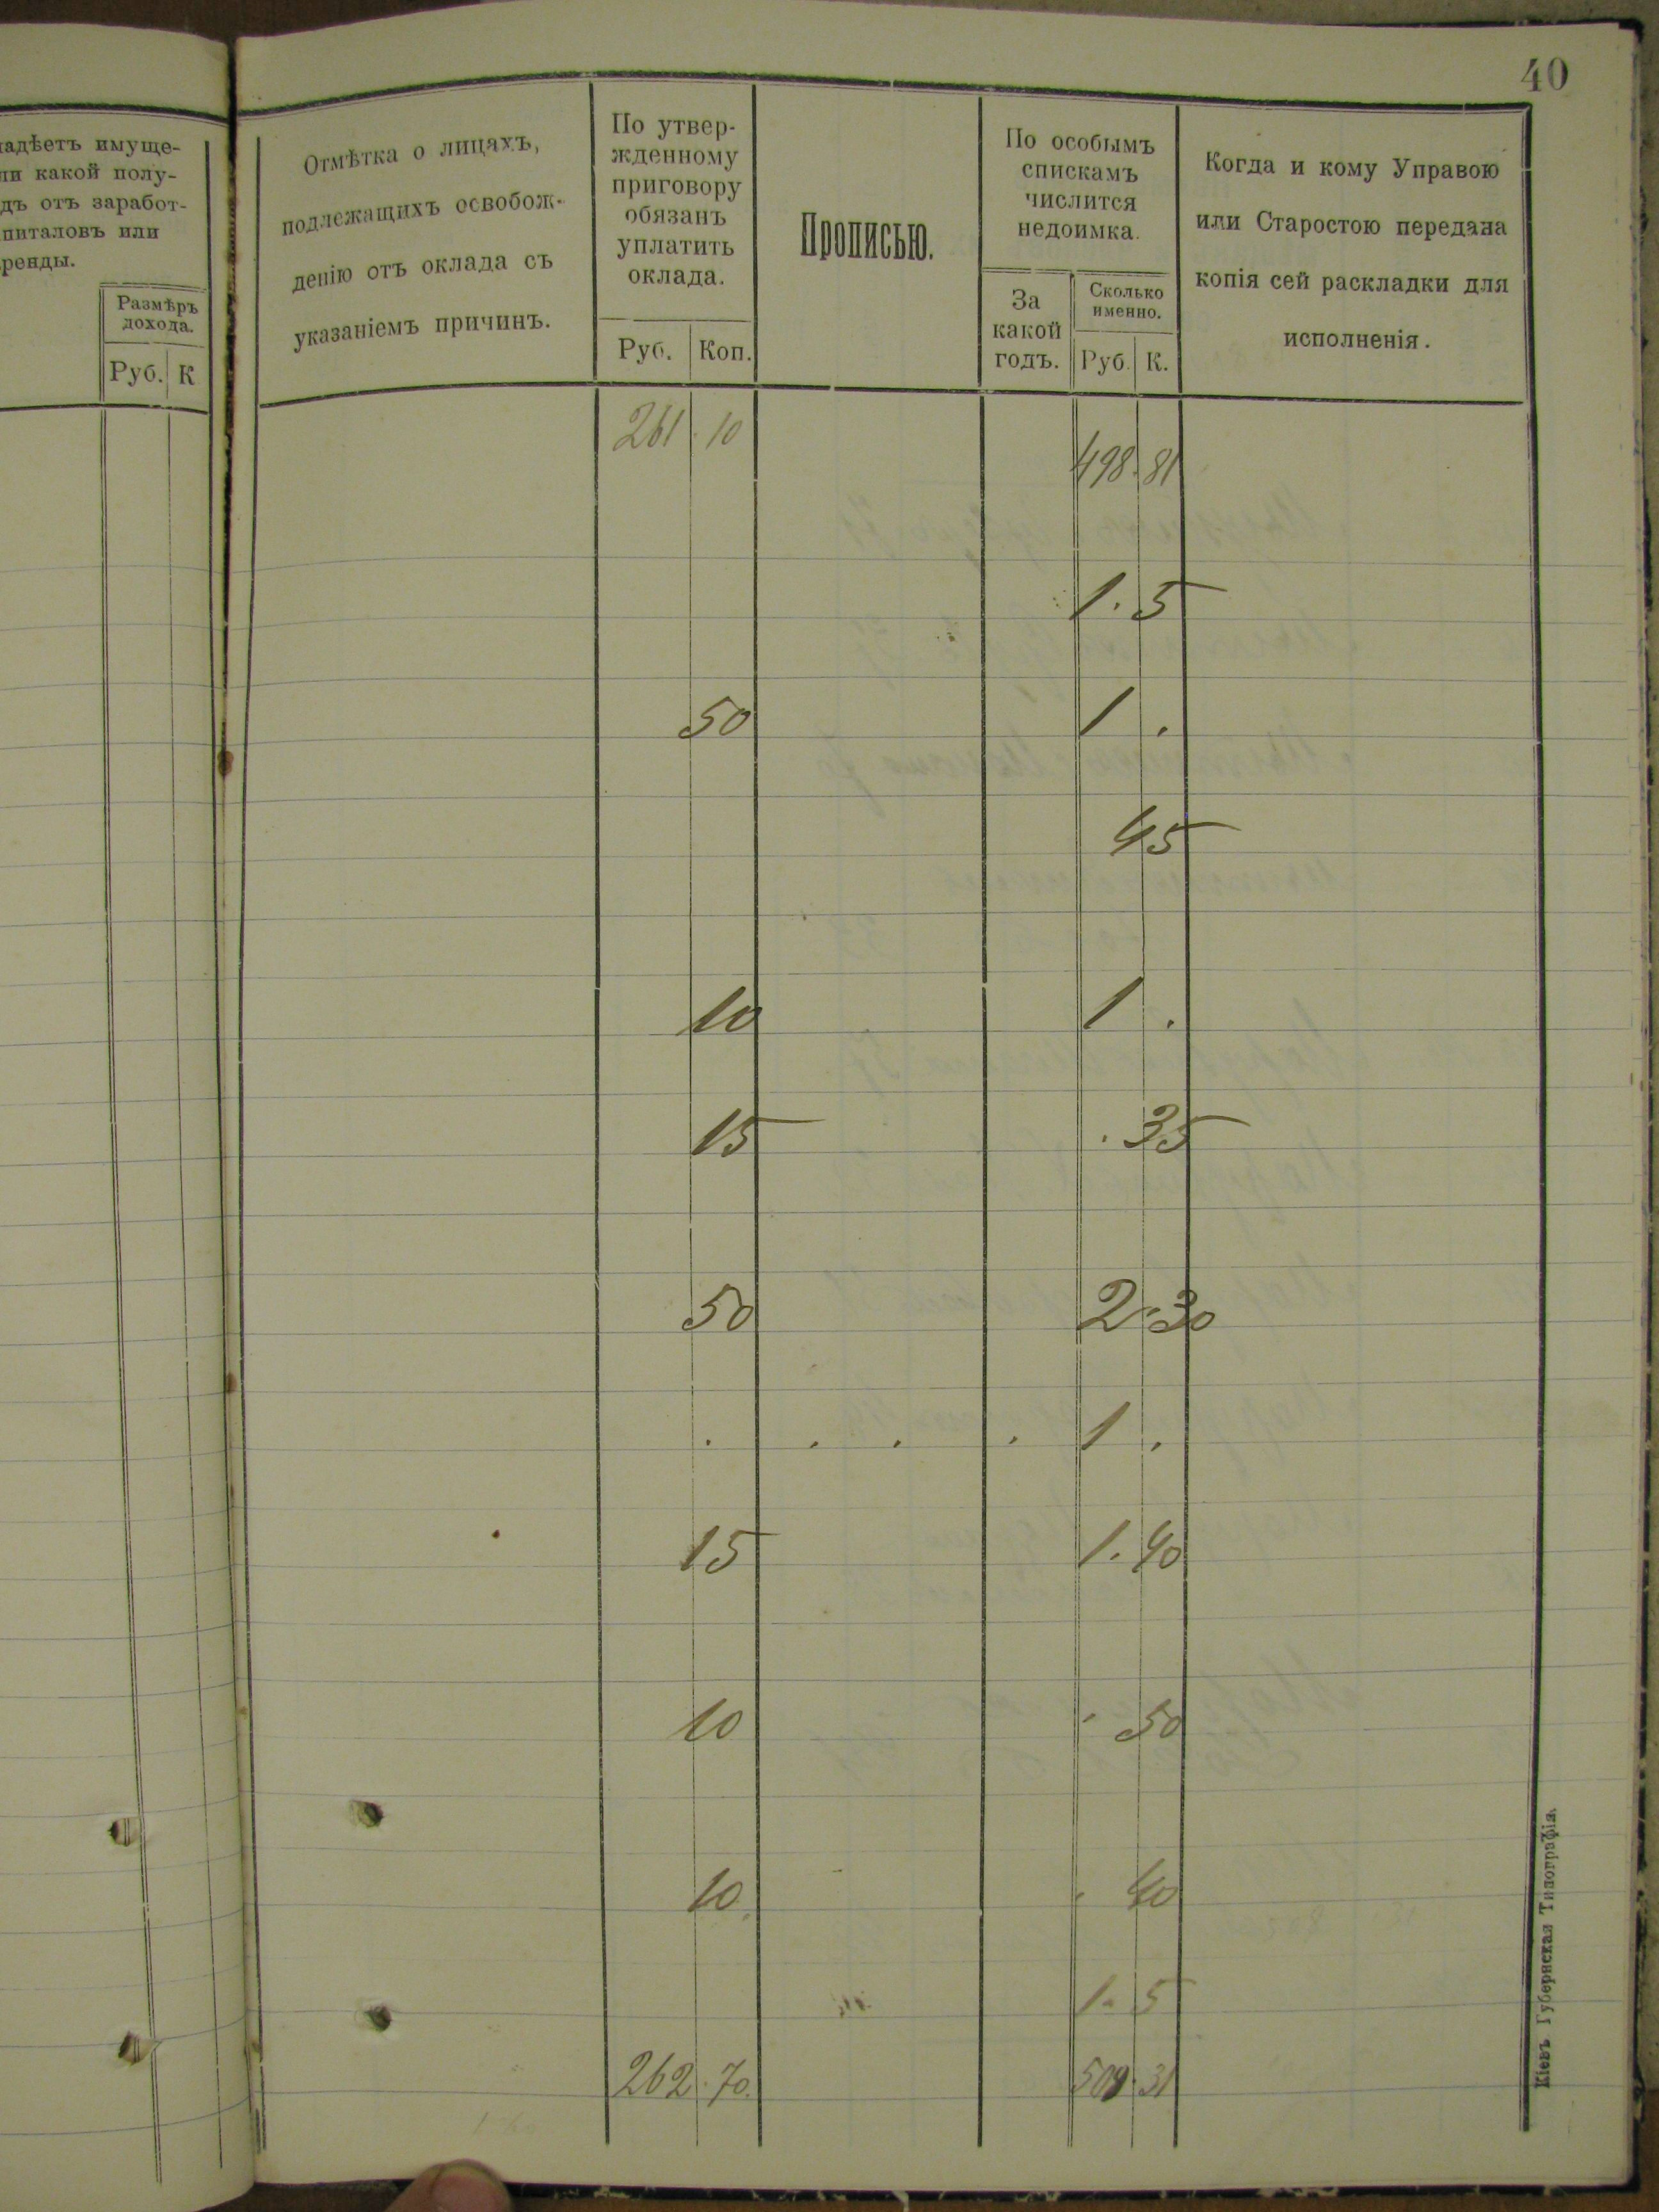 40
адѣетъ имуще-
ли какой полу-
дъ отъ заработ-
питаловъ или
ренды.
Размѣръ
дохода.
Руб. К
Отмѣтка о лицахъ,
подлежащихъ освобож-
денію отъ оклада съ
указаніемъ причинъ.
По утвер-
жденному
приговору
обязанъ
уплатить
оклада.
Руб. Коп.
Прописью.
По особымъ
спискамъ
числится
недоимка.
За
какой
годъ.
Сколько
именно.
Руб. К.
Когда и кому Управою
или Старостою передана
копія сей раскладки для
исполненія.
261 . 10
498 . 81
1 . 5
50 1 .
45
10 1 .
15 . 35
50 2 . 30
. . . . 1 .
15 1 . 40
10 . 50
10 . 40
1 . 5
262 . 70. 509 . 31
Кіевъ Губернская Типографія.